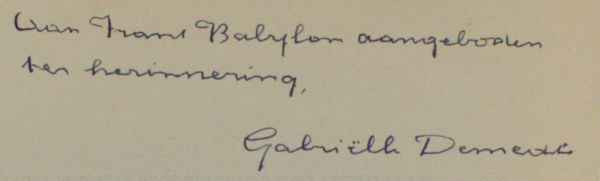 Aan Frans Babylon aangeboden
ter herinnering,
Gabriëlle Demedts